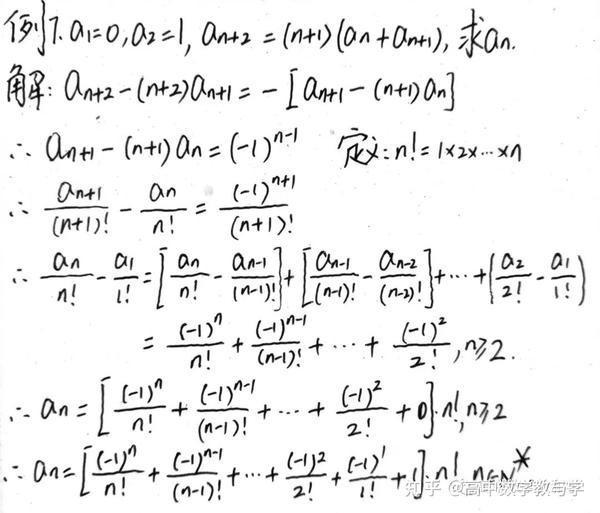 例7. a₁=0, a₂=1, aₙ₊₂ = (n+1)(aₙ+aₙ₊₁), 求aₙ.
解: aₙ₊₂-(n+2)aₙ₊₁ = -[aₙ₊₁-(n+1)aₙ]
∴ aₙ₊₁-(n+1)aₙ = (-1)ⁿ⁻¹ 定义: n! = 1×2×⋯×n
∴ aₙ₊₁/(n+1)! - aₙ/n! = (-1)ⁿ⁺¹/(n+1)!
∴ aₙ/n! - a₁/1! = [aₙ/n! - aₙ₋₁/(n-1)!] + [aₙ₋₁/(n-1)! - aₙ₋₂/(n-2)!] + ⋯ + (a₂/2! - a₁/1!)
= (-1)ⁿ/n! + (-1)ⁿ⁻¹/(n-1)! + ⋯ + (-1)²/2!, n≥2.
∴ aₙ = [(-1)ⁿ/n! + (-1)ⁿ⁻¹/(n-1)! + ⋯ + (-1)²/2! + 0]·n!, n≥2
∴ aₙ = [(-1)ⁿ/n! + (-1)ⁿ⁻¹/(n-1)! + ⋯ + (-1)²/2! + (-1)¹/1! + 1]·n! n∈N*
知乎 @高中数学教与学